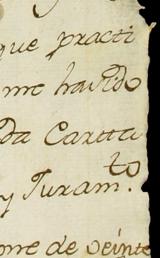 que practi
me havido
da Cartta
y Juram.to
ome de veinte